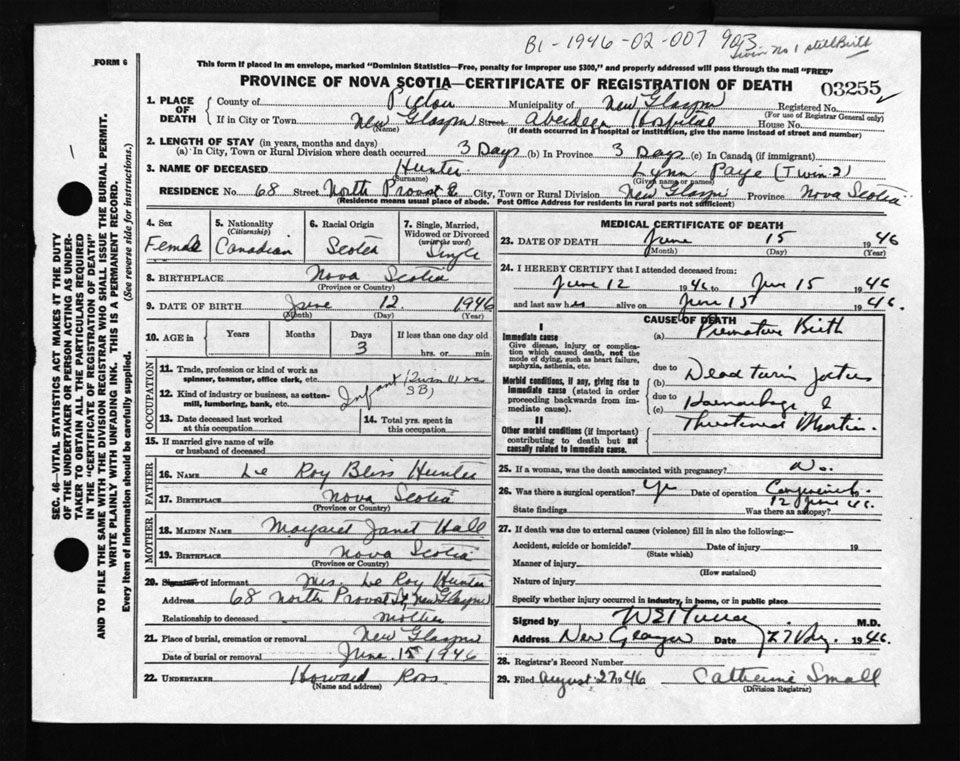 B1-1946-02-007903
Twin No 1 still Birth
FORM 6
This form if placed in an envelope, marked "Dominion Statistics—Free, penalty for improper use $300," and properly addressed will pass through the mail "FREE"
PROVINCE OF NOVA SCOTIA—CERTIFICATE OF REGISTRATION OF DEATH 03255
1. PLACE OF DEATH { County of Pictou Municipality of New Glasgow Registered No.
(For use of Registrar General only)
If in City or Town New Glasgow Street Aberdeen Hospital House No.
(Name) (If death occurred in a hospital or institution, give the name instead of street and number)
2. LENGTH OF STAY (in years, months and days)
(a) In City, Town or Rural Division where death occurred 3 Days (b) In Province 3 Days (c) In Canada (if immigrant)
3. NAME OF DECEASED Hunter Lynn Faye (Twin 2)
(Surname) (Given name or names)
RESIDENCE No. 68 Street North Provost St City, Town or Rural Division New Glasgow Province Nova Scotia
(Residence means usual place of abode. Post Office Address for residents in rural parts not sufficient)
4. Sex Female
5. Nationality (Citizenship) Canadian
6. Racial Origin Scotch
7. Single, Married, Widowed or Divorced (write the word) Single
8. BIRTHPLACE Nova Scotia
(Province or Country)
9. DATE OF BIRTH June 12 1946
(Month) (Day) (Year)
10. AGE in { Years Months Days If less than one day old
3 hrs. or min.
OCCUPATION
11. Trade, profession or kind of work as spinner, teamster, office clerk, etc.
12. Kind of industry or business, as cotton-mill, lumbering, bank, etc. Infant (Twin #1 was SB)
13. Date deceased last worked at this occupation
14. Total yrs. spent in this occupation
15. If married give name of wife or husband of deceased
FATHER
16. NAME Le Roy Bliss Hunter
17. BIRTHPLACE Nova Scotia
(Province or Country)
MOTHER
18. MAIDEN NAME Margaret Janet Hall
19. BIRTHPLACE Nova Scotia
(Province or Country)
20. Signature of informant Mrs. Le Roy Hunter
Address 68 North Provost St, New Glasgow
Relationship to deceased Mother
21. Place of burial, cremation or removal New Glasgow
Date of burial or removal June 15 1946
22. UNDERTAKER Howard Ross
(Name and address)
MEDICAL CERTIFICATE OF DEATH
23. DATE OF DEATH June 15 1946
(Month) (Day) (Year)
24. I HEREBY CERTIFY that I attended deceased from:
June 12 1946 to June 15 1946
and last saw her alive on June 15 1946.
CAUSE OF DEATH
I
Immediate cause (a) Premature Birth
Give disease, injury or complication which caused death, not the mode of dying, such as heart failure, asphyxia, asthenia, etc.
due to
Morbid conditions, if any, giving rise to immediate cause (stated in order proceeding backwards from immediate cause).
(b) Dead twin foetus
due to
(c) Haemorrhage &
Threatened
II
Other morbid conditions (if important) contributing to death but not causally related to immediate cause.
25. If a woman, was the death associated with pregnancy? No.
26. Was there a surgical operation? Yes Date of operation
12 June 46.
State findings Was there an autopsy?
27. If death was due to external causes (violence) fill in also the following:—
Accident, suicide or homicide? Date of injury 19
(State which)
Manner of injury
(How sustained)
Nature of injury
Specify whether injury occurred in industry, in home, or in public place
Signed by M.D.
Address New Glasgow Date 27 1946.
28. Registrar's Record Number
29. Filed August 27 1946 Catherine Small
(Division Registrar)
SEC. 46—VITAL STATISTICS ACT MAKES IT THE DUTY
OF THE UNDERTAKER OR PERSON ACTING AS UNDER-
TAKER TO OBTAIN ALL THE PARTICULARS REQUIRED
IN THE "CERTIFICATE OF REGISTRATION OF DEATH"
AND TO FILE THE SAME WITH THE DIVISION REGISTRAR WHO SHALL ISSUE THE BURIAL PERMIT.
WRITE PLAINLY WITH UNFADING INK. THIS IS A PERMANENT RECORD.
Every item of information should be carefully supplied. (See reverse side for instructions.)